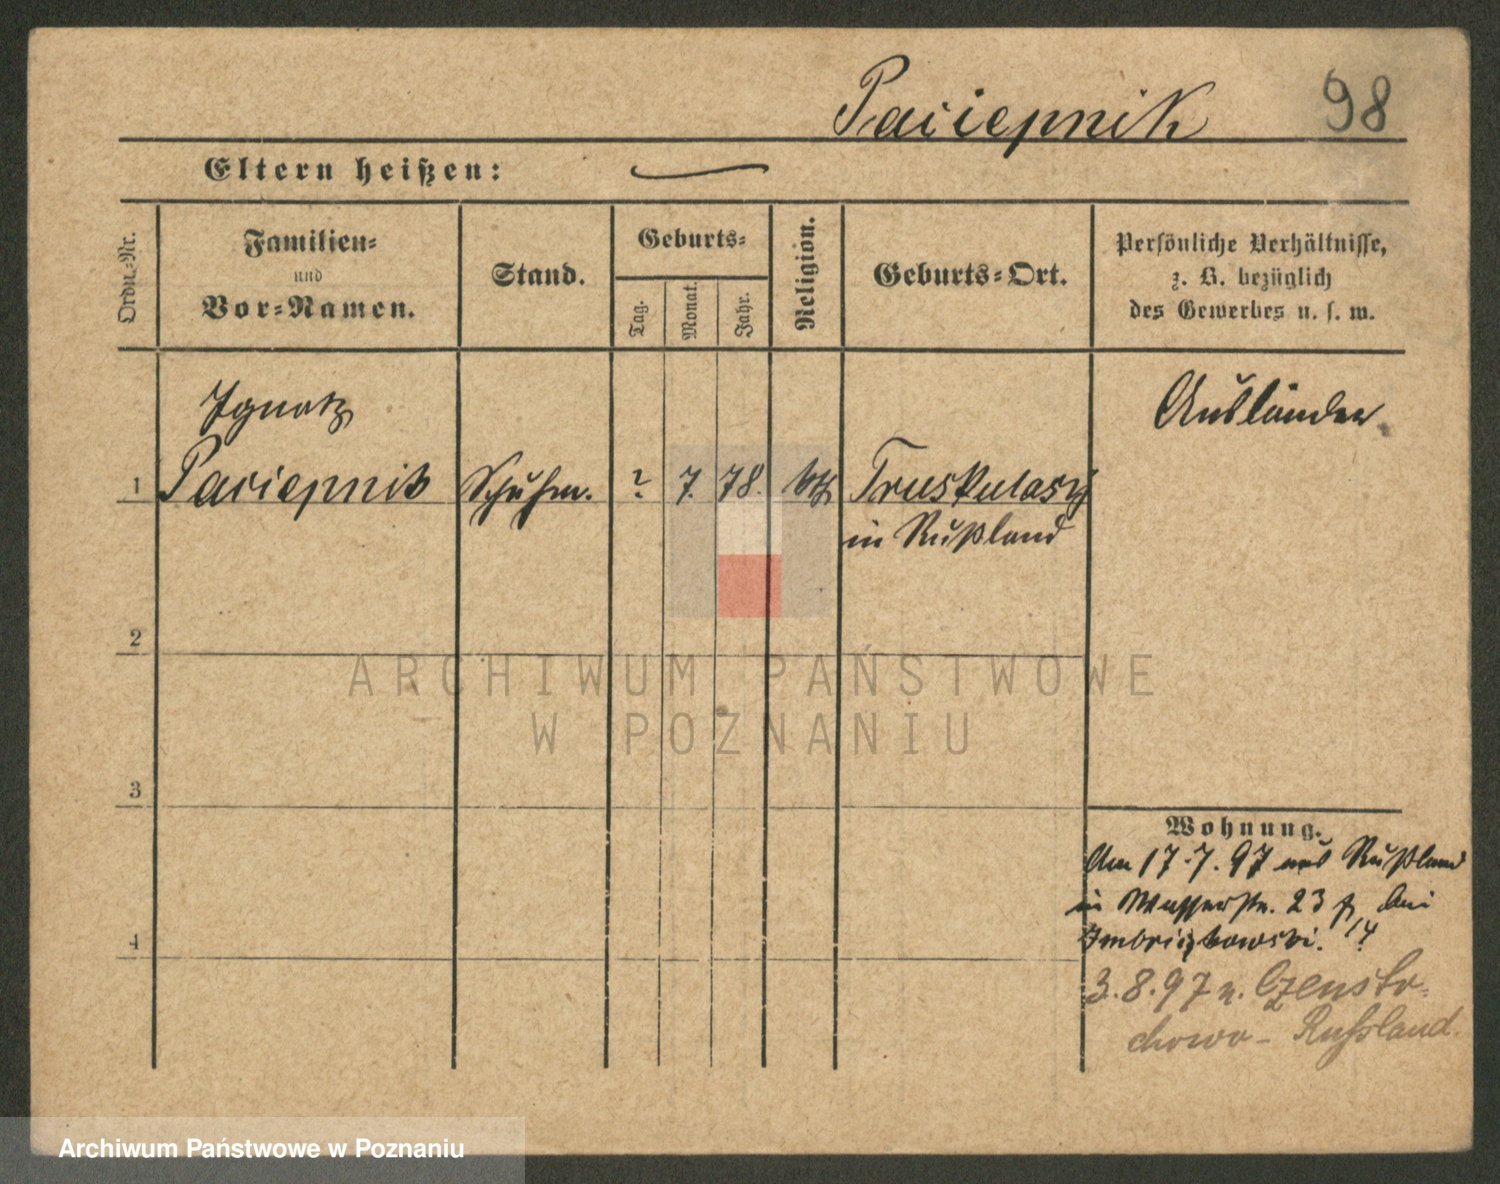 Paciepnik 98
Eltern heißen:
Ordn.-Nr.
Familien-
und
Vor-Namen.
Stand.
Geburts-
Tag.
Monat.
Jahr.
Religion.
Geburts-Ort.
Persönliche Verhältnisse,
z. B. bezüglich
des Gewerbes u. s. w.
Ignatz
Ausländer
1 Paciepnik Schuhm. ? 7. 78. kth Truskulasy
in Rußland
2
3
4
Wohnung.
Am 17.7.97 aus Rußland
in Wasserstr. 23 bei
3.8.97 n. Czensto-
chowo - Russland.
ARCHIWUM PAŃSTWOWE
W POZNANIU
Archiwum Państwowe w Poznaniu